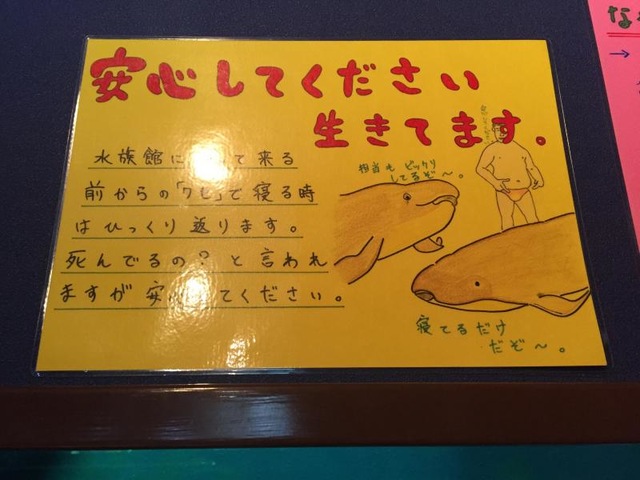 安心してください
生きてます。
水族館に て来る
前からの「クセ」で寝る時
はひっくり返ります。
死んでるの?と言われ
ますが安心してください。
担当もビックリ
してるぞ〜。
寝てるだけ
だぞ〜。
な
→